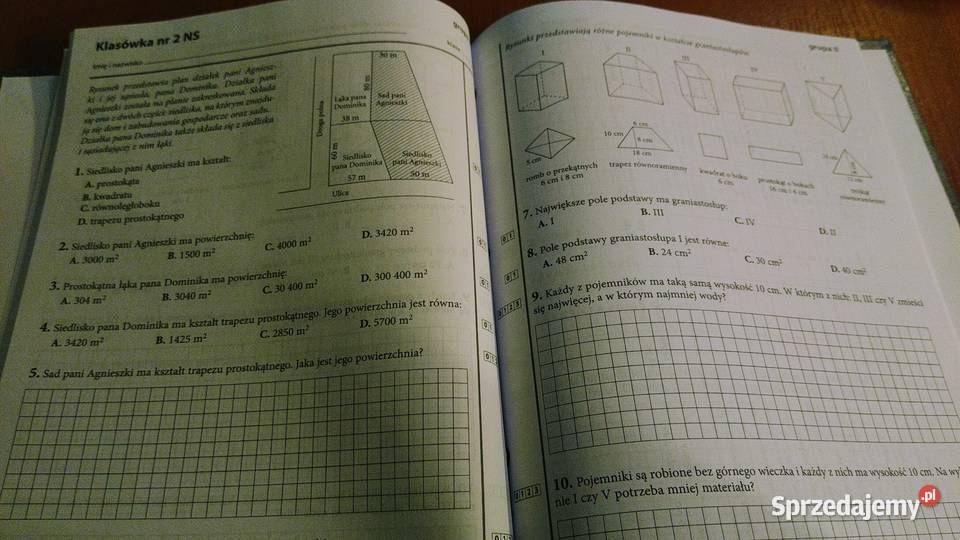 Klasówka nr 2 NS
Imię i nazwisko
klasa
Rysunek przedstawia plan działek pani Agniesz-
ki i jej sąsiada, pana Dominika. Działka pani
Agnieszki została na planie zakreskowana. Składa
się ona z dwóch części: siedliska, na którym znajdu-
ją się dom i zabudowania gospodarcze oraz sadu.
Działka pana Dominika także składa się z siedliska
i sąsiadującej z nim łąki.
30 m
80 m
Droga polna
Łąka pana
Dominika
Sad pani
Agnieszki
38 m
60 m
Siedlisko
pana Dominika
Siedlisko
pani Agnieszki
57 m
50 m
Ulica
1. Siedlisko pani Agnieszki ma kształt:
A. prostokąta
B. kwadratu
C. równoległoboku
D. trapezu prostokątnego
2. Siedlisko pani Agnieszki ma powierzchnię:
A. 3000 m²
B. 1500 m²
C. 4000 m²
D. 3420 m²
3. Prostokątna łąka pana Dominika ma powierzchnię:
A. 304 m²
B. 3040 m²
C. 30 400 m²
D. 300 400 m²
4. Siedlisko pana Dominika ma kształt trapezu prostokątnego. Jego powierzchnia jest równa:
A. 3420 m²
B. 1425 m²
C. 2850 m²
D. 5700 m²
5. Sad pani Agnieszki ma kształt trapezu prostokątnego. Jaka jest jego powierzchnia?
Rysunki przedstawiają różne pojemniki w kształcie graniastosłupów.
grupa II
I
II
III
IV
V
5 cm
romb o przekątnych
6 cm i 8 cm
6 cm
10 cm
8 cm
18 cm
trapez równoramienny
kwadrat o boku
6 cm
prostokąt o bokach
16 cm i 4 cm
12 cm
trójkąt
równoramienny
7. Największe pole podstawy ma graniastosłup:
A. I
B. III
C. IV
D. II
8. Pole podstawy graniastosłupa I jest równe:
A. 48 cm²
B. 24 cm²
C. 30 cm²
D. 40 cm²
9. Każdy z pojemników ma taką samą wysokość 10 cm. W którym z nich: II, III czy V zmieści
się najwięcej, a w którym najmniej wody?
10. Pojemniki są robione bez górnego wieczka i każdy z nich ma wysokość 10 cm. Na wy
nie I czy V potrzeba mniej materiału?
0 1
0 1
0 1 2 3
0 1 2 3
Sprzedajemy.pl